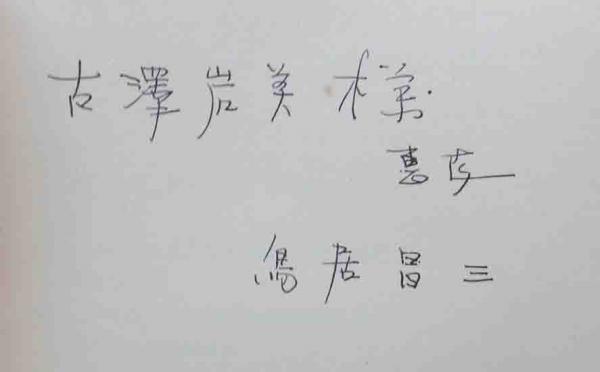 古澤岩美様
恵存
鳥居昌三